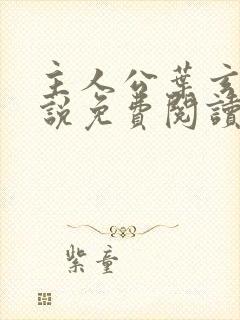 主人公葉玄
說免費閱讀
紫童